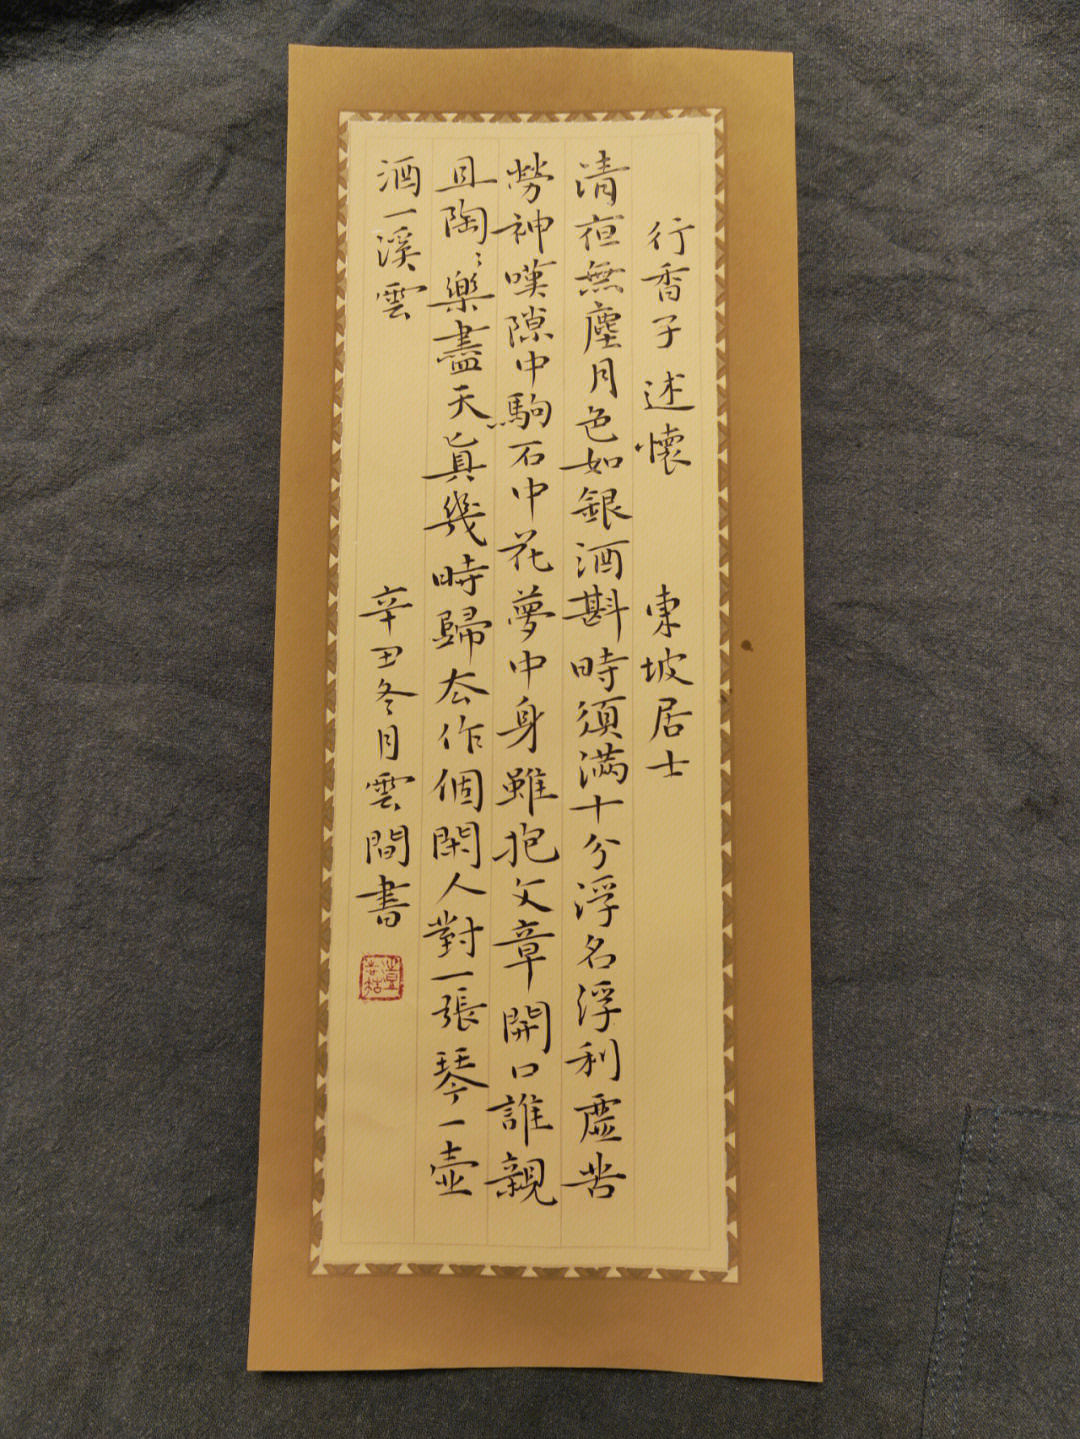 行香子 述懷 東坡居士
清夜無塵月色如銀酒斟時須滿十分浮名浮利虛苦
勞神嘆隙中駒石中花夢中身雖抱文章開口誰親
且陶〻樂盡天真幾時歸去作個閑人對一張琴一壺
酒一溪雲
辛丑冬月雲間書